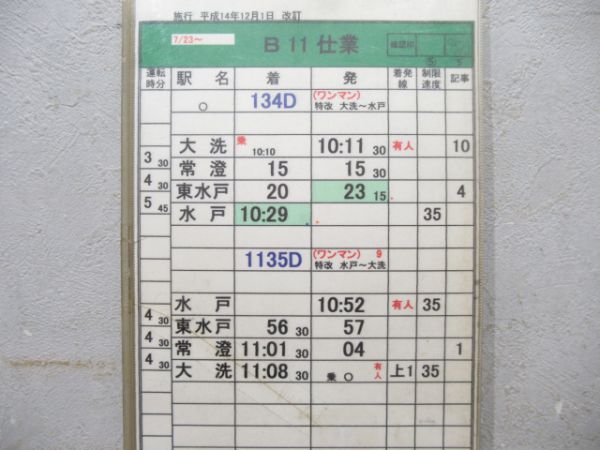 施行 平成14年12月1日 改訂
7/23～ B 11 仕業 確認印
運転時分 駅 名 着 発 着発線 制限速度 記事
○ 134D (ワンマン) 特改 大洗～水戸
大 洗 乗 10:10 10:11 30 有人 10
3 30
常 澄 15 15 30
4 30
東水戸 20 23 15 4
5 45
水 戸 10:29 35
1135D (ワンマン) 9 特改 水戸～大洗
水 戸 10:52 有人 35
4 30
東水戸 56 30 57
4 30
常 澄 11:01 30 04 1
4 30
大 洗 11:08 30 乗 ○ 有人 上1 35